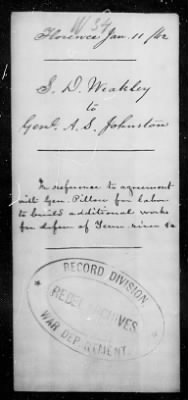 W 34
Florence Jan. 11 /62
S. D. Weakley
to
Genl. A. S. Johnston
In reference to agreement
with Gen. Pillow for labor
to build additional works
for defen of Tenn. river &c
RECORD DIVISION
REBEL ARCHIVES
WAR DEPARTMENT.